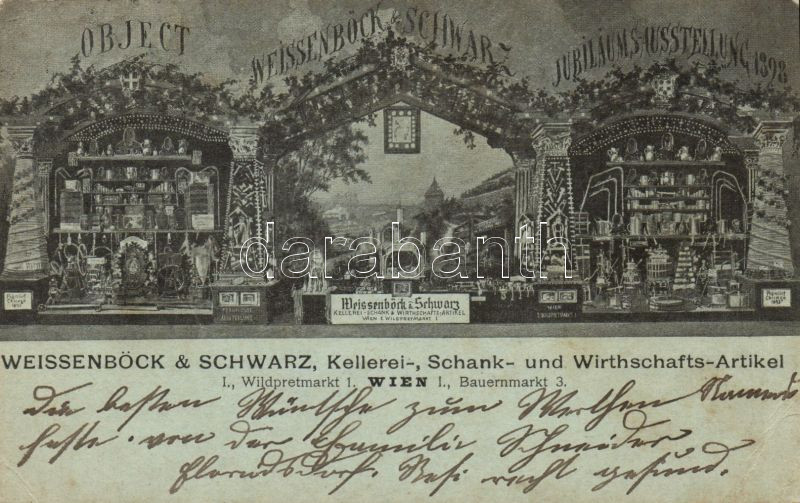 OBJECT WEISSENBÖCK & SCHWARZ JUBILÄUMS-AUSSTELLUNG 1898
darabanth
Weissenböck & Schwarz
KELLEREI-SCHANK & WIRTHSCHAFTS-ARTIKEL
WIEN I. WILDPRETMARKT 1
WEISSENBÖCK & SCHWARZ, Kellerei-, Schank- und Wirthschafts-Artikel
I., Wildpretmarkt 1. WIEN I., Bauernmarkt 3.
Die besten Wünsche zum Werthen Namens
feste von der Familie Schneider
Resi recht gesund.